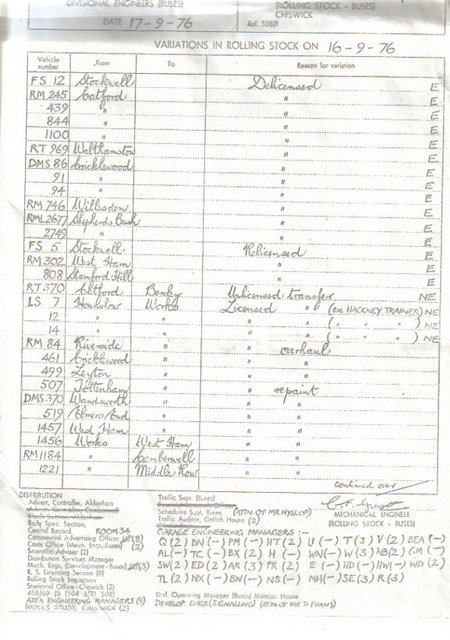 DIVISIONAL ENGINEERS (BUSES) (ROLLING STOCK - BUSES)
CHISWICK
DATE 17-9-76 Ref. 508/1
VARIATIONS IN ROLLING STOCK ON 16-9-76
Vehicle number From To Reason for variation
FS 12 Stockwell Delicensed E
RM 245 Catford " E
439 " " E
844 " " E
1100 " " E
RT 969 Walthamstow " E
DMS 86 Cricklewood " E
91 " " E
94 " " E
RM 746 Willesden " E
RML 2677 Shepherds Bush " E
2749 " " E
FS 5 Stockwell Relicensed E
RM 302 West Ham " E
808 Stamford Hill " E
RT 370 Catford Bexley Unlicensed transfer NE
LS 7 Hounslow Works Licensed " (ex HACKNEY TRAINER) NE
12 " " " " ( " " " ) NE
14 " " " " ( " " " ) NE
RM 84 Riverside " " overhaul
461 Cricklewood " " "
499 Leyton " " "
507 Tottenham " " repaint
DMS 370 Wandsworth " " "
519 Elmers End " " "
1457 West Ham " " "
1456 Works West Ham " "
RM 1184 " Camberwell " "
1221 " Middle Row " "
continued over
DISTRIBUTION
Advert. Controller, Aldenham
Body Spec. Section,
Central Record ROOM 34
Commercial Advertising Officer (8)
Costs Office (Mech. Engs.-buses) (2)
Scientific Adviser (2)
Distribution Services Manager
Mech. Engs. (Development - Buses) (3)
R. S. Licensing Section (8)
Rolling Stock Inspection
Statistical Office - Chiswick (2)
AREA ENGINEERING MANAGERS
WORKS STUDY, CHISWICK (2)
Traffic Supt. (Buses)
Schedules Supt. (Buses) (ATTN OF MR HYSLOP)
Traffic Auditor, Griffith House (2)
MECHANICAL ENGINEER
(ROLLING STOCK - BUSES)
GARAGE ENGINEERING MANAGERS :-
Q (2) BN (-) PM (-) HT (2) U (-) T (3) V (2) BEA (-)
AL (-) TC (-) BX (2) H (-) WN (-) W (3) NB (2) GM (-)
SW (2) ED (2) AR (3) PR (2) E (-) HD (-) HW (-) WD (2)
TL (2) NX (-) BW (-) NS (-) MH (-) SE (3) R (3)
Divl. Operating Manager (Buses) Mansion House
DEVELOP ENGR (SIGNALLING) (ATTN OF MR D EVANS)